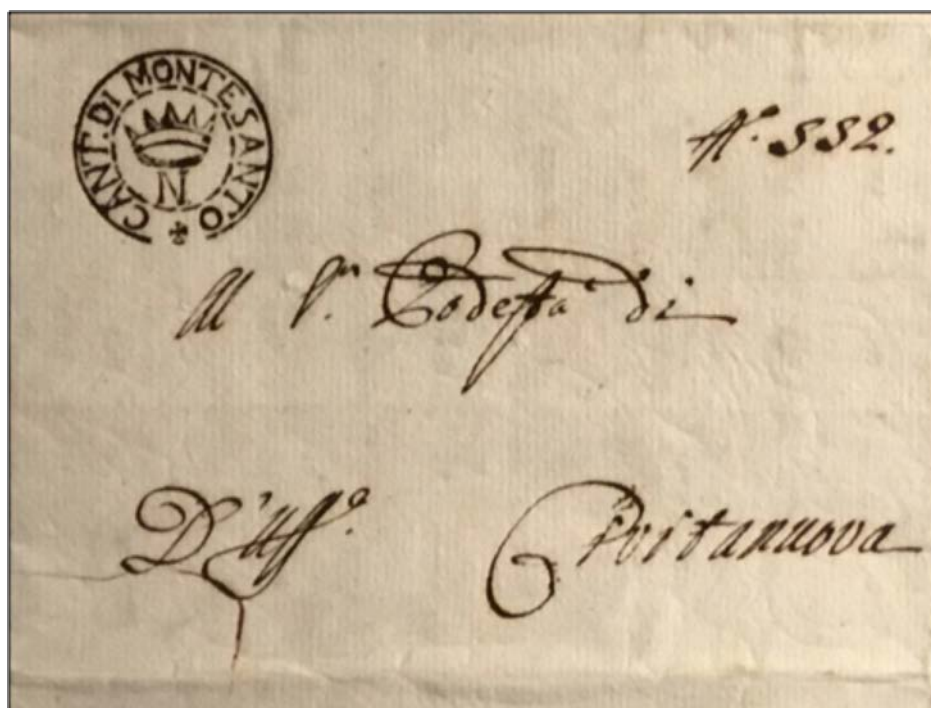 CANT. DI MONTESANTO
N
N.° 552.
Al S.r Podestà di
D'Uff.o Civitanuova